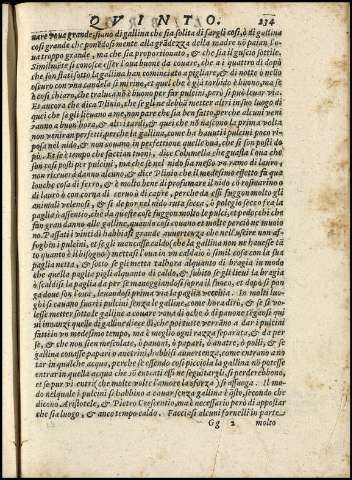 QVINTO. 234
nare uoua grande: siano di gallina che sia solita di fargli così, ò di gallina
così grande che ponẽdosi mente alla grãdezza della madre nõ paian l'uo
ua troppo grande, ma che sia proportionato, & che sia il guscio sottile.
Similmẽte si conosce esser l'oua buone da couare, che ai quattro dì dopò
che son stati sotto la gallina han cominciato a pigliare, & di notte ò nello
oscuro con una candela si mirino, et quel che è già torbido è buono, ma se
è così chiaro, che traluca nõ è buono per far pulcini, però si può leuar via.
Et ancora che dica Plinio, che se gli ne debbia metter altri in suo luogo di
quei che se gli leuano, à me non pare che sia ben fatto, perche alcuni veni
ranno a buon'hora, & altri tardi, & quei che nõ nascono la prima volta
non venirian perfetti, perche la gallina, come ha hauuti i pulcini poco ri
posa nel nido, & non couano in perfettione quelle oua, che si son posti do
pò. Et se è tempo che faccian tuoni, dice Columella che guasta l'oua che
son così posti per pulcini, ma che se nel nido sia messo vn ramo di lauro,
non riceuerà danno alcuno, & dice Plinio che il medesimo effetto fa qua
lonche cosa di ferro, & è molto bene di profumare il nido cõ rosmarino ò
di lauro ò con corna di ceruo ò di capre, perche da essi fuggon molto gli
animali velenosi, & si de por nel nido ruta secca, ò polegio secco fra la
paglia ò assentio, che da queste cose fuggon molto le pulci, et pedocchi che
fan gran danno alle galline, quando così couano et molte perciò ne muoio
no. Passati i vinti dì habbiasi grande auuertenza che nell'uscire non af-
foghin i pulcini, et se gli mancasse caldo (che la gallina non ne hauesse tã
to quanto li bisogno) mettasi l'oua in vn caldaio ò simil cosa con la sua
paglia netta, & sotto se gli metta tal'hora alquanto di bragia in modo
che quella paglia pigli alquanto di caldo, & subito se gli lieui la bragia
ò scaldisi la paglia da per se maneggiandosi sopra il fuoco, et dopò si pon
ga doue son l'oua, leuandosi prima via la paglia vecchia. In molti luo-
ghi si cauano fuori i pulcini senza le galline, come hora dirò, & se si vo-
lesse metter sotto le galline a couare vuoua di oche ò di pauone si gaste qui
ui innanzi quelle di galline diece dì, che potriate verranno a dar i pulcini
tutti in vn medesimo tempo, ma è meglio ogni razza separata, & da per
se, & che non sien mescolate, ò pauoni, ò papari, ò anatre, ò polli, & se
gallina couasse papari ò ancitrini, habbisi auuertenza, come entrano a no
tar in qualche acqua, perche se essendo così picciola la gallina nõ potesse
entrar in quella acqua che sõ entrati essi ne seguitargli, si perderebbono,
et se pur vi entri (che molte volte l'amore la sforza) s'affoga. Il me-
do nel quale i pulcini si habbino a cauar senza gallina è q̃sto, secondo che
dicono Aristotele, & Pietro Crescentio, ma è necessario però di appostar
che sia luogo, & anco tempo caldo. Facciasi alcuni fornelli in parte
Gg 2 molto